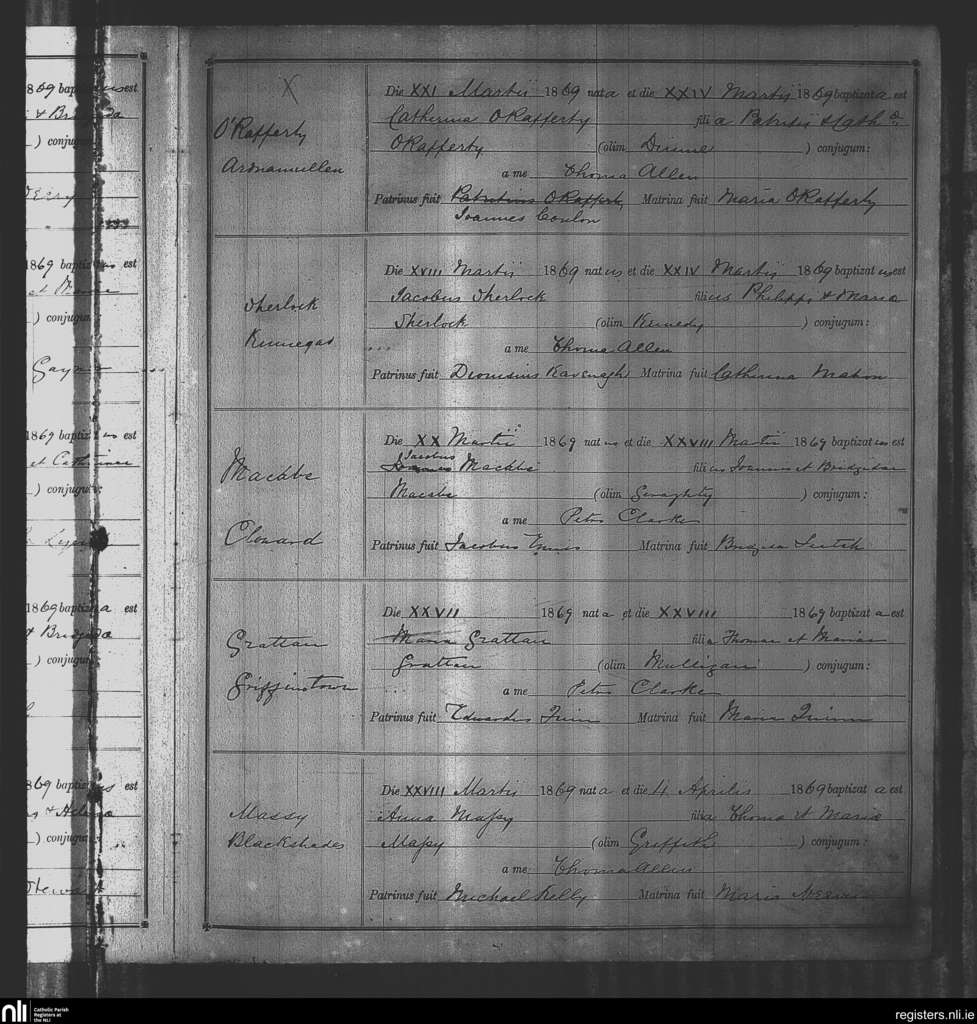 1869 baptizatus est
& Brigida
) conjugum
1869 baptizatus est
et Maria
) conjugum
1869 baptizatus est
et Catherinae
) conjugum:
1869 baptizata est
& Brigida
) conjugum:
1869 baptizatus est
& Helena
) conjugum
Stewart
X
O'Rafferty
Ardnamullen
Die XXI Martii 1869 nata et die XXIV Martii 1869 baptizata est
Catherina O'Rafferty filia Patritii & Cathae
O'Rafferty (olim ) conjugum:
a me Thoma Allen
Patrinus fuit Patritius O'Rafferty Matrina fuit Maria O'Rafferty
Joannes Conlon
Sherlock
Kinnegad
Die XVIII Martii 1869 natus et die XXIV Martii 1869 baptizatus est
Jacobus Sherlock filius Philippi & Maria
Sherlock (olim Kennedy ) conjugum:
a me Thoma Allen
Patrinus fuit Dionisius Kavenagh Matrina fuit Catherina Mahon
Macabe
Clonard
Die XX Martii 1869 natus et die XXVIII Martii 1869 baptizatus est
Jacobus
Joannes Macabe filius Joannis et Bridgidae
Macabe (olim Geraghty ) conjugum:
a me Petro Clarke
Patrinus fuit Jacobus Ennis Matrina fuit Brigida
Grattan
Griffinstown
Die XXVII 1869 nata et die XXVIII 1869 baptizata est
Maria Grattan filia Thomae et Mariae
Grattan (olim Mulligan ) conjugum:
a me Petro Clarke
Patrinus fuit Edwardus Quinn Matrina fuit Maria Quinn
Massy
Blackshades
Die XXVIII Martii 1869 nata et die 4 Aprilis 1869 baptizata est
Anna Massy filia Thoma et Maria
Massy (olim Griffith ) conjugum:
a me Thoma Allen
Patrinus fuit Michael Kelly Matrina fuit Maria
nli Catholic Parish
Registers at
the NLI
registers.nli.ie